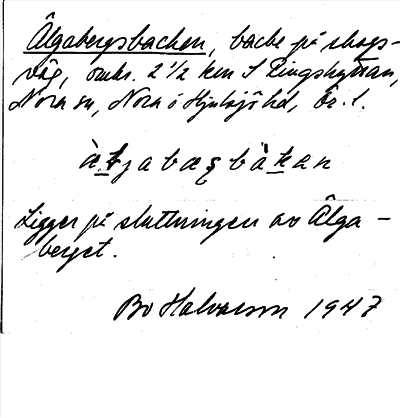 Älgabergsbacken, backe på skogs-
väg, omkr. 2 1/2 km S Pingshyttan,
Nora sn, Nora o Hjulsjö hd, Ör. l.
Ligger på sluttningen av Älga-
berget.
Bo Halvarson 1947